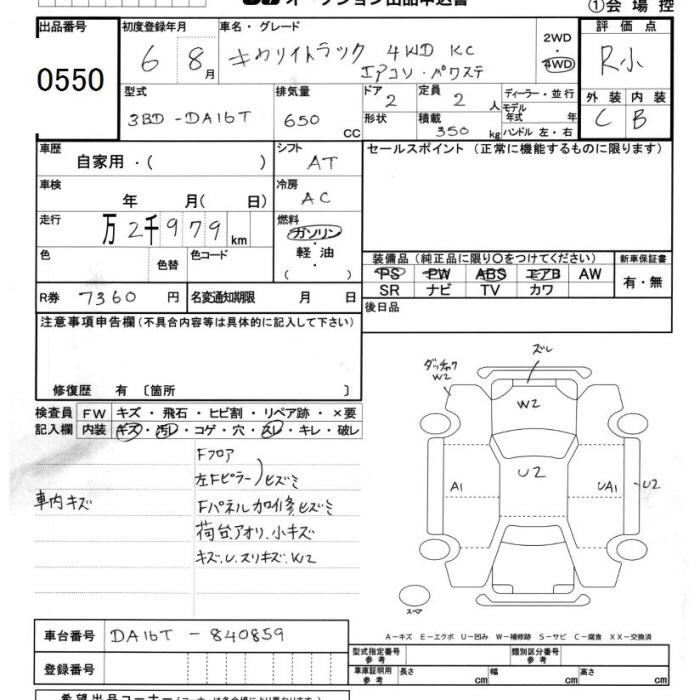 オークション出品申込書
①会場控
出品番号
0550
初度登録年月
6 8月
車名・グレード
キャリイトラック 4WD KC
エアコン・パワステ
2WD
・
4WD
評価点
R小
外装 内装
C B
型式
3BD-DA16T
排気量
650 CC
ドア 2
形状
定員 2 人
積載 350 kg
ディーラー・並行
モデル年式 年
ハンドル 左・右
車歴
自家用・( )
シフト
AT
セールスポイント (正常に機能するものに限ります)
車検
年 月( 日)
冷房
AC
走行
万2千979 km
燃料
ガソリン
・
軽油
( ・ )
色
色替
色コード
装備品(純正品に限り○をつけてください)
PS PW ABS エアB AW
SR ナビ TV カワ
新車保証書
有・無
R券 7360 円
名変通知期限 月 日
後日品
注意事項申告欄(不具合内容等は具体的に記入して下さい)
修復歴 有 〔箇所 〕
検査員 FW キズ・飛石・ヒビ割・リペア跡・×要
記入欄 内装 キズ・汚レ・コゲ・穴・スレ・キレ・破レ
車内キズ
Fフロア
左Fピラー)ヒズミ
Fパネル加修、ヒズミ
荷台、アオリ、小キズ
キズ、U、スリキズ、W2
ダッチャク
W2
ズレ
W2
A1
U2
UA1
U2
スペア
A-キズ E-エクボ U-凹み W-補修跡 S-サビ C-腐食 XX-交換済
車台番号 DA16T-840859
登録番号
型式指定番号
参考
類別区分番号
参考
車庫証明用
参考
長さ cm 幅 cm 高さ cm
希望出品コーナー